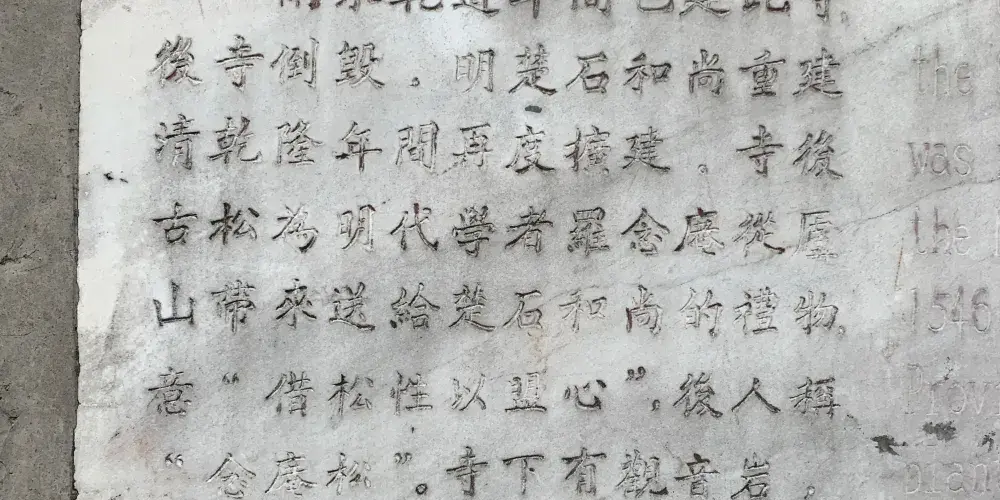 年間已建此寺,
後寺倒毀。明楚石和尚重建
清乾隆年間再度擴建。寺後
古松為明代學者羅念庵從廬
山帶來送給楚石和尚的禮物,
意“借松性以盟心”,後人稱
“念庵松”。寺下有觀音岩,
the
was
the
1546
Prov
plan